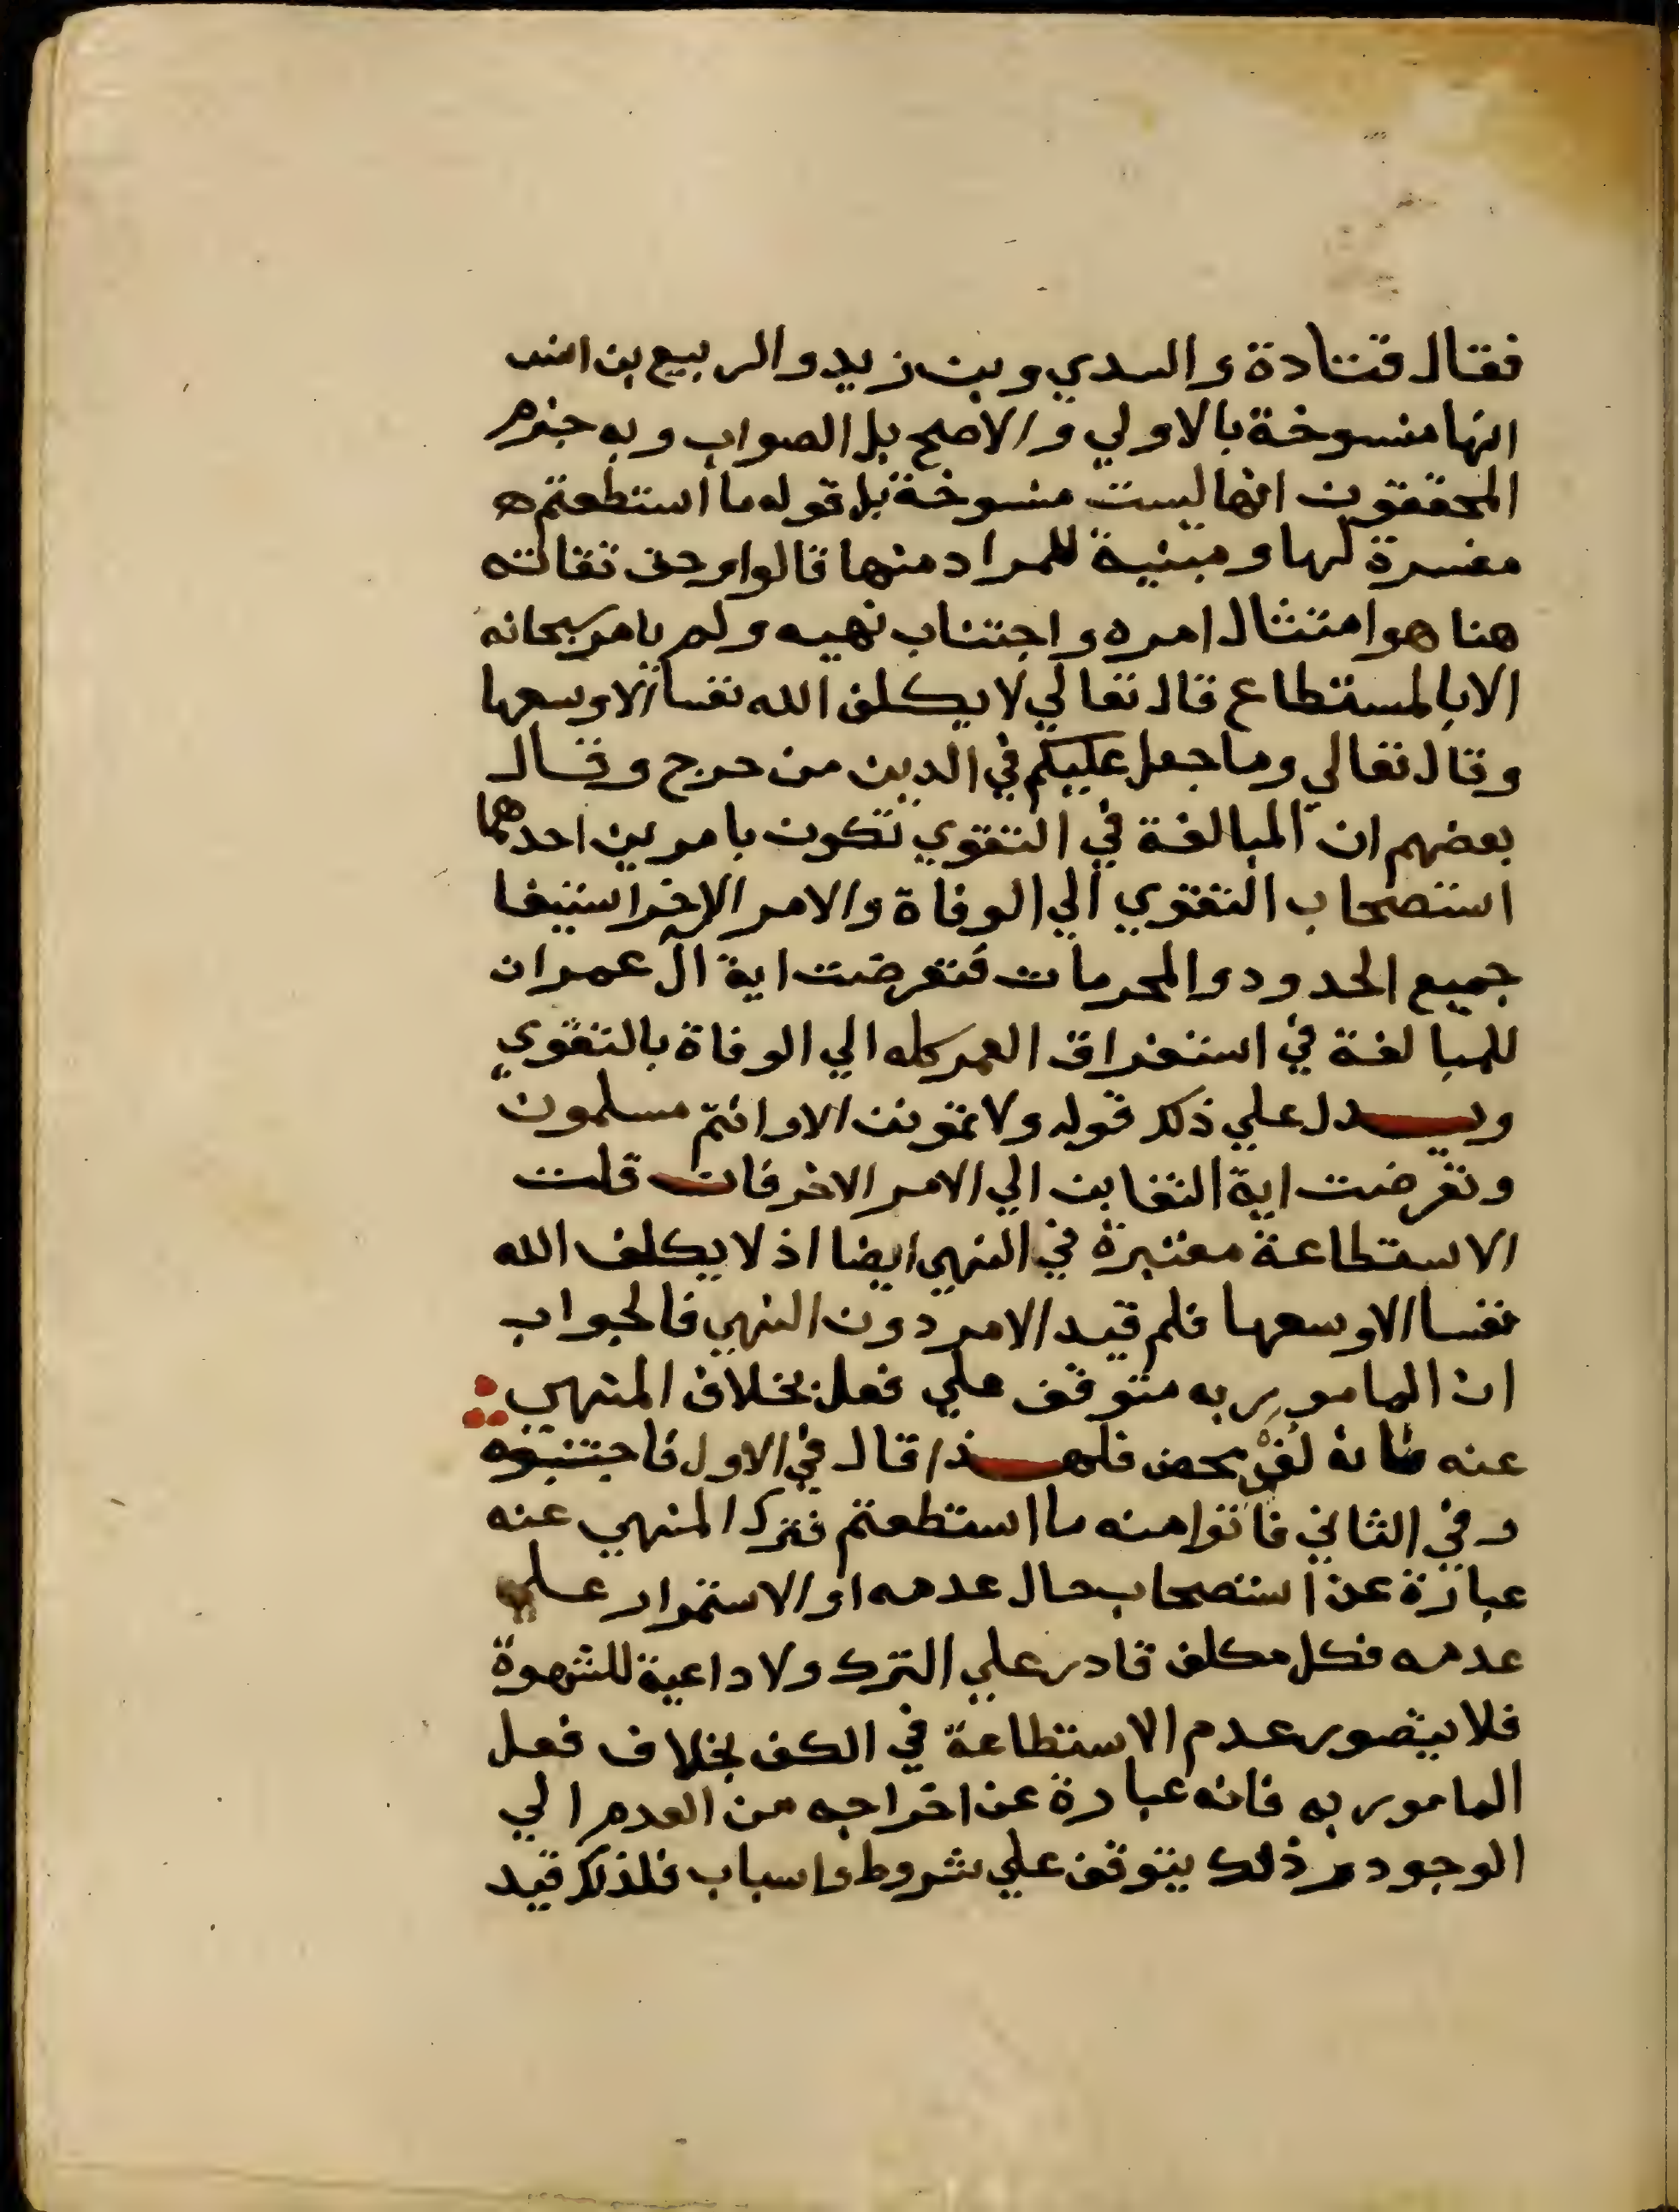 فقال قتادة والسدي وبن زيد والربيع بن انس
انها منسوخة بالاولي والاصح بل الصواب وبه جزم
المحققون انها ليست منسوخة بل قوله ما استطعتم
مفسرة لها ومبنية للمراد منها قالوا وحق تقاته
هنا هو امتثال امره واجتناب نهيه ولم يامر سبحانه
الا بالمستطاع قال تعالي لا يكلف الله نفسا الا وسعها
وقال تعالي وما جعل عليكم في الدين من حرج وقال
بعضهم ان المبالغة في التقوي تكون بامرين احدهما
استصحاب التقوي الي الوفاة والامر الاخر استيفا
جميع الحدود والمحرمات فتعرضت اية ال عمران
للمبالغة في استغراق العمر كله الي الوفاة بالتقوي
ويدل علي ذلك قوله ولا تموتن الا وانتم مسلمون
وتعرضت اية التغابن الي الامر الاخر فان قلت
الاستطاعة معتبرة في النهي ايضا اذ لا يكلف الله
نفسا الا وسعها فلم قيد الامر دون النهي فالجواب
ان المامور به متوقف علي فعل بخلاف المنهي
عنه فانه محض فلهذا قال في الاول فاجتنبوه
وفي الثاني فاتوا منه ما استطعتم فترك المنهي عنه
عبارة عن استصحاب حال عدمه او الاستمرار علي
عدمه فكل مكلف قادر علي الترك ولا داعية للشهوة
فلا يتصور عدم الاستطاعة في الكف بخلاف فعل
المامور به فانه عبارة عن اخراجه من العدم الي
الوجود وذلك يتوقف علي شروط واسباب فلذلك قيد